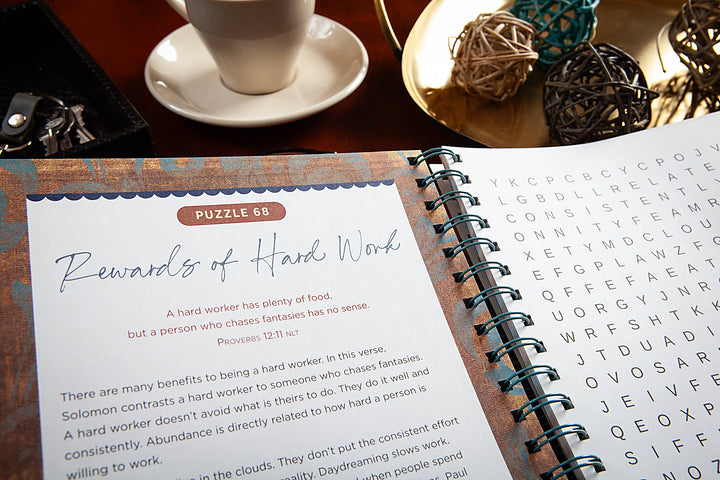 PUZZLE 68
Rewards of Hard Work
A hard worker has plenty of food,
but a person who chases fantasies has no sense.
PROVERBS 12:11 NLT
There are many benefits to being a hard worker. In this verse,
Solomon contrasts a hard worker to someone who chases fantasies.
A hard worker doesn't avoid what is theirs to do. They do it well and
consistently. Abundance is directly related to how hard a person is
willing to work.
in the clouds. They don't put the consistent effort
Daydreaming slows work.
when people spend
Paul
Y K C P C B C Y C P O J V
L G B D L L R E L A T E
C O N S I S T E N T L
O N N I T Y F E A M R
X E T Y M D C L O U
E F G P L A W Z F
Q F F E F A E A T
U O R G Y J N R
W R F S H T K
J T D U A D I
O V O S A R
J E I V F E
Q E O X P
S I F F